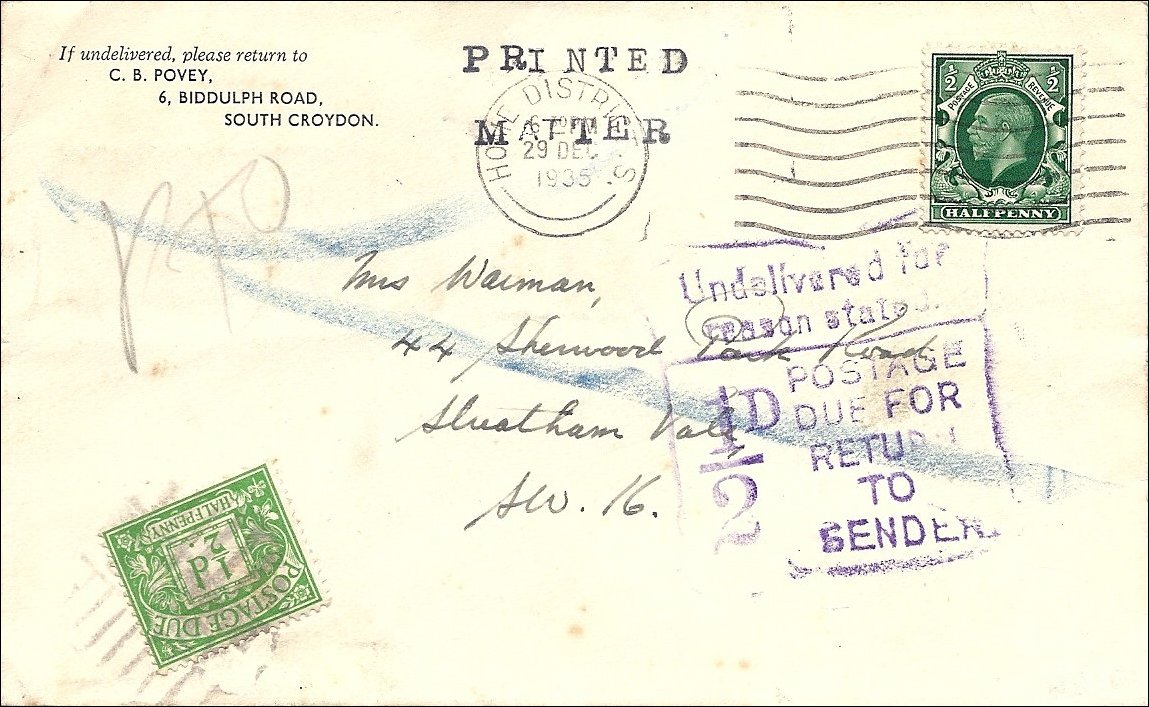 If undelivered, please return to
C. B. POVEY,
6, BIDDULPH ROAD,
SOUTH CROYDON.
PRINTED
MATTER
HOME DISTRICT S
6 PM
29 DEC
1935
½ ½
POSTAGE REVENUE
HALFPENNY
PTO
Mrs Waiman,
44 Sherwood Park Road
Streatham Vale
SW. 16.
Undelivered for
reason stated.
½D
POSTAGE
DUE FOR
RETURN
TO
SENDER
POSTAGE DUE
½D.
HALFPENNY